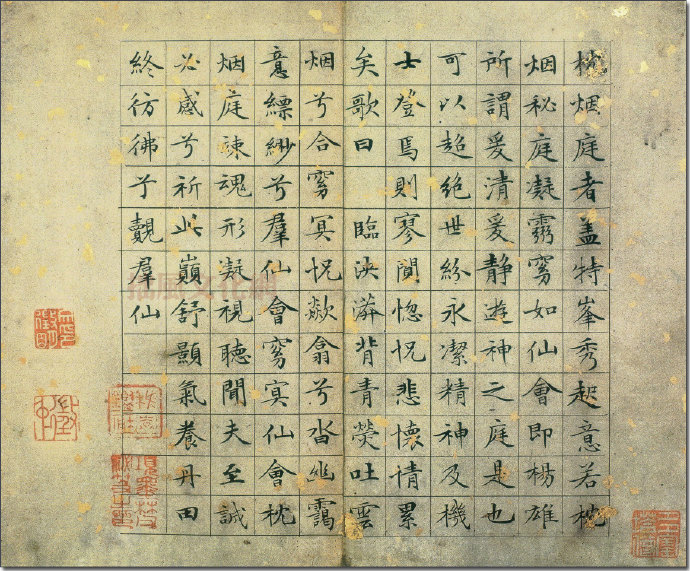 枕烟庭者盖特峯秀起意若枕
烟秘庭凝靄窅如仙會即楊雄
所謂爰清爰静遊神之庭是也
可以超絕世紛永潔精神及機
士登焉則寥闃惚怳悲懷情累
矣歌曰 臨泱漭背青熒吐雲
烟兮合窅冥怳欻翕兮沓幽靄
意縹緲兮羣仙會窅冥仙會枕
烟庭竦魂形凝視聽聞夫至誠
必感兮祈此巔舒顥氣養丹田
終彷彿兮覿羣仙